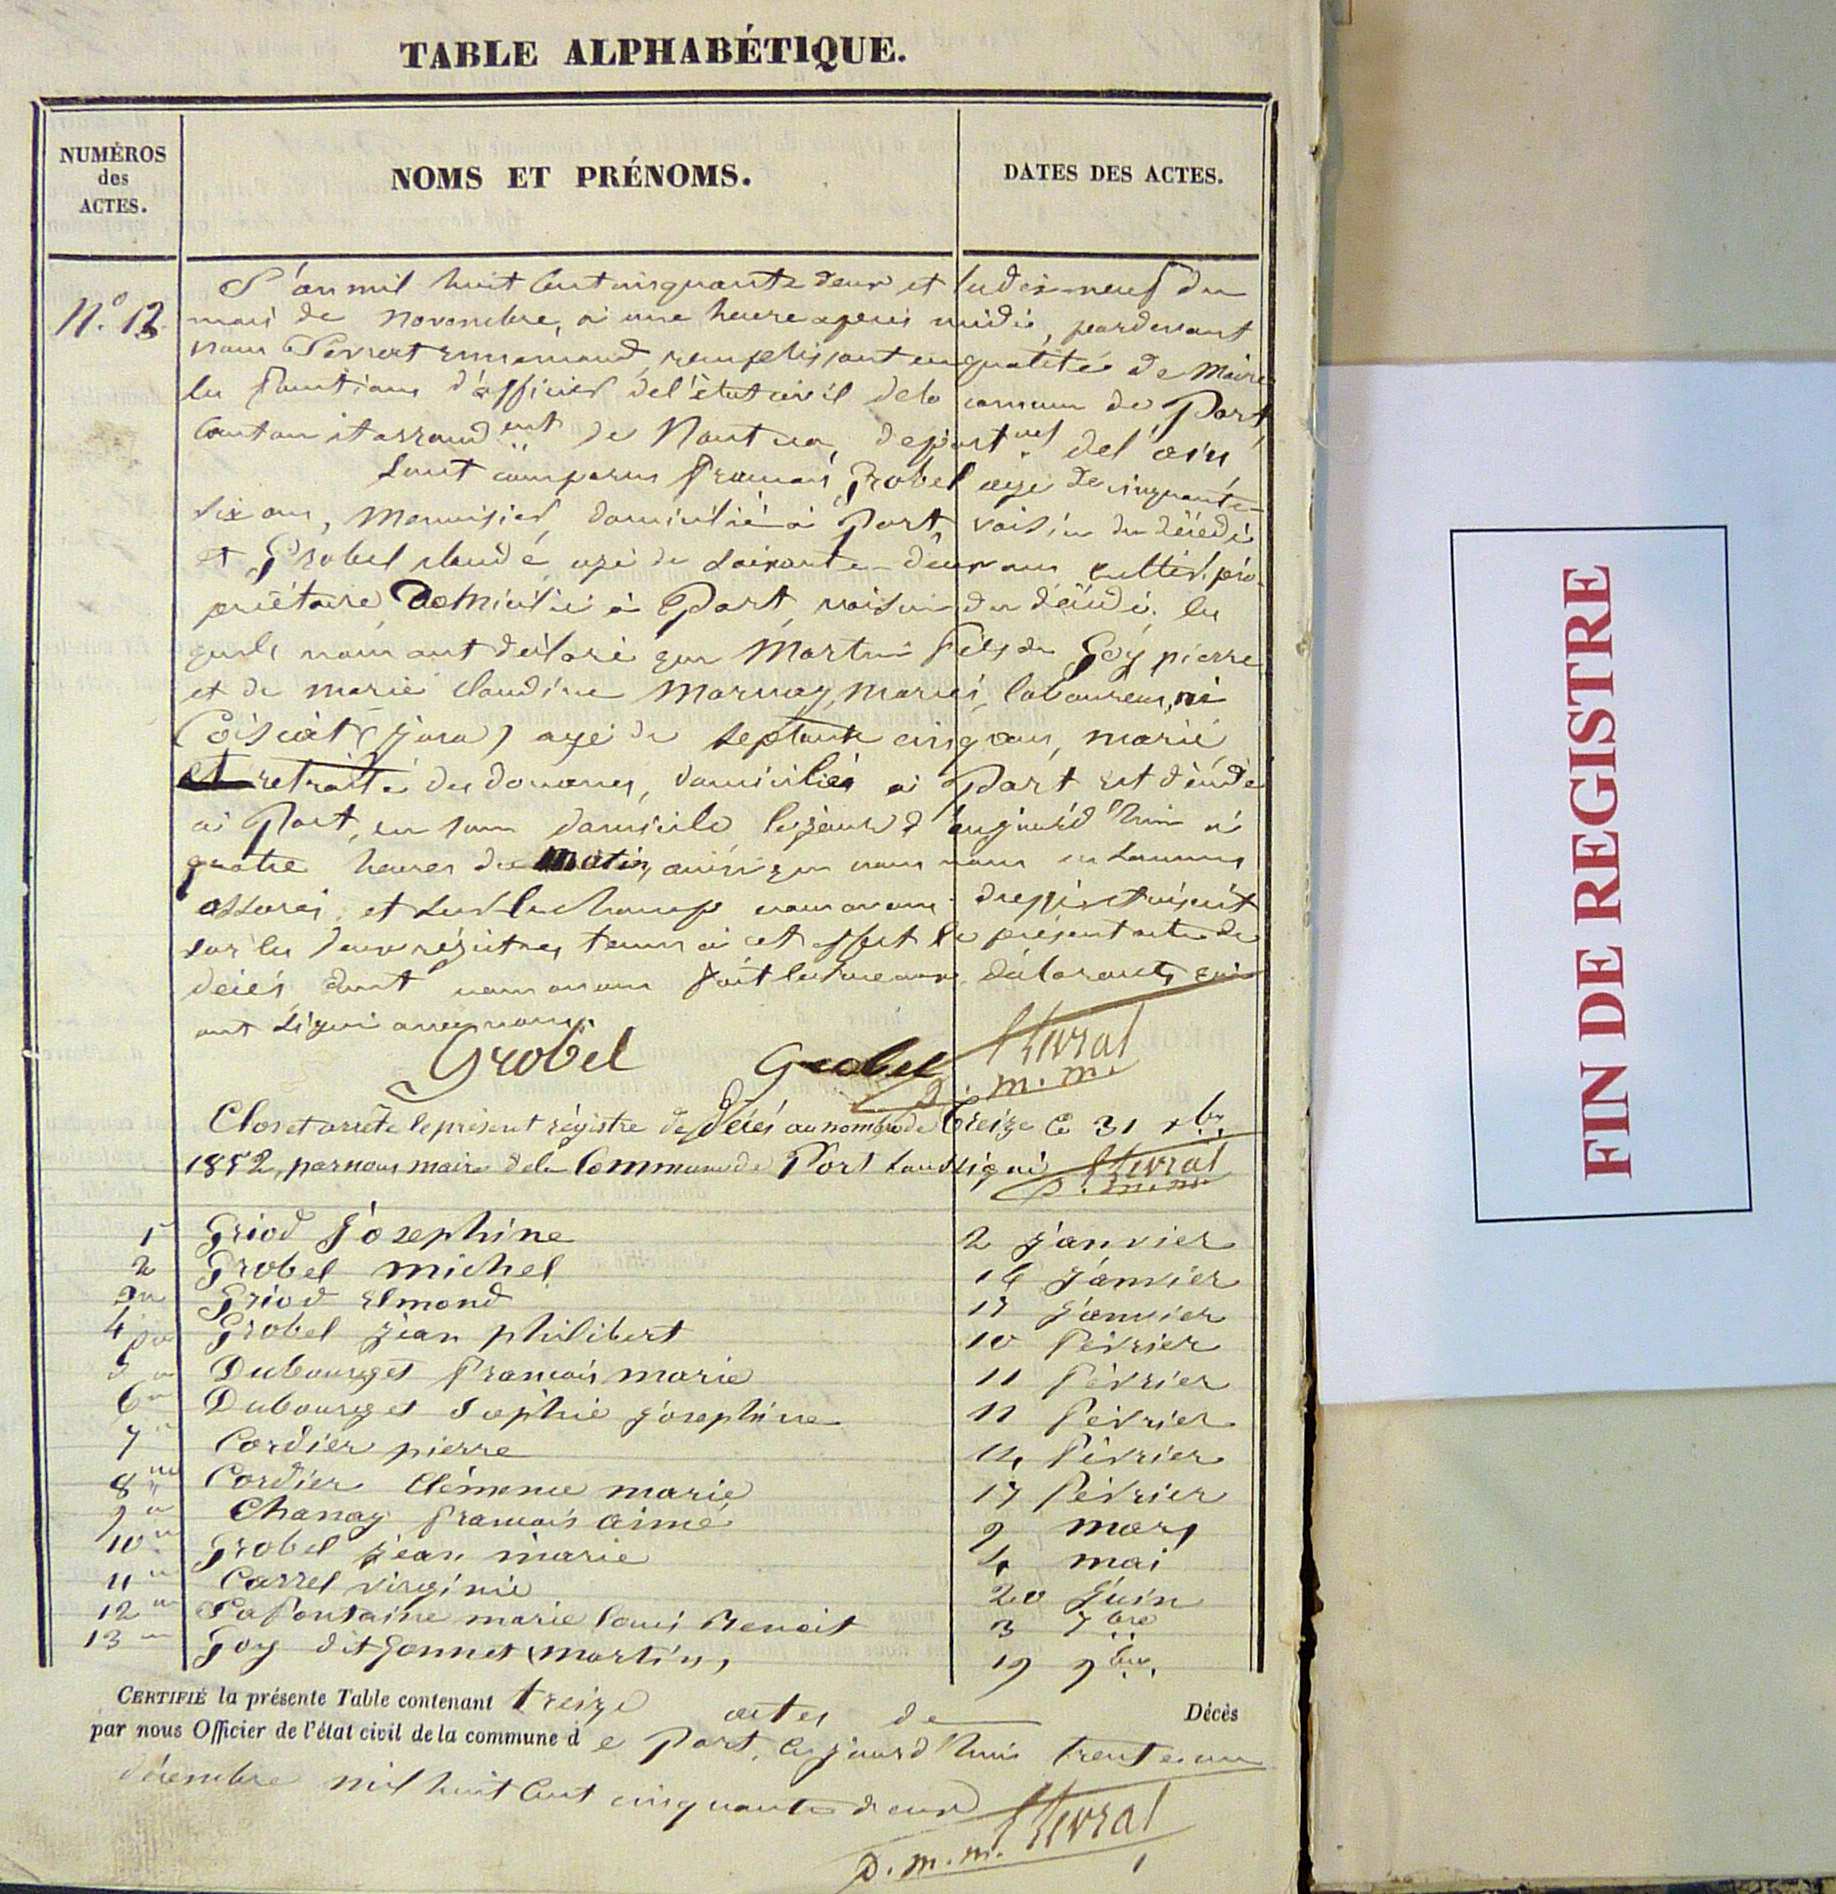 TABLE ALPHABÉTIQUE.
NUMÉROS
des
ACTES.
NOMS ET PRÉNOMS.
DATES DES ACTES.
L'an mil huit cent cinquante deux et le dix neuf du
N.° 13. mois de novembre, à une heure après midi, pardevant
nous remplissant en qualité de Maire
les fonctions d'officier de l'état civil de la commune de Port,
canton et arrond.ent de Nantua, depart.nt de l'ain,
sont comparus françois Grobel agé de cinquante-
six ans, Menuisier domicilié à Port, voisin du décédé
et Grobel claude agé de soixante-deux ans cultiv. pro-
priétaire Domicilié à Port, voisin du décédé. les
quels nous ont déclaré que Martin fils de Goÿ pierre
et de marie claudine Marnay, laboureur, né
Coisiat (jura) agé de septante cinq ans, marié
et retraité des douanes, domicilié à Port est décédé
à Port, en son domicile le jour d'aujourd'hui à
quatre heures du matin, ainsi que nous nous en sommes
assuré, et sur le champ nous avons
sur les deux régistres tenus à cet effet le présent acte de
décès, dont nous avons fait lecture aux déclarants, qui
ont signé avec nous.
Grobel Grobel
D. m. m.
Clos et arrêté le présent régistre de Décés au nombre de treize ce 31 xbr.
1852, par nous maire de la Commune de Port soussigné
1 Griod Josephine 2 Janvier
2 Grobel michel 16 Janvier
3 Griod 17 Janvier
4 Grobel jean philibert 10 février
5 Dubourget francois marie 11 février
6 Dubourget Sophie josephine 11 février
7 Cordier pierre 14 février
8 Cordier Clémence marie 17 février
9 Chanay francois aimé 9 mars
10 Grobel jean marie 4 mai
11 Carrel virginie 20 juin
12 Lafontaine marie louis Benoit 3 7bre
13 Goy dit Jonnet martin, 19 9bre.
CERTIFIÉ la présente Table contenant treize actes de Décès
par nous Officier de l'état civil de la commune de Port, aujourd'hui trente un
décembre mil huit cent cinquante deux
D. m. m.
FIN DE REGISTRE